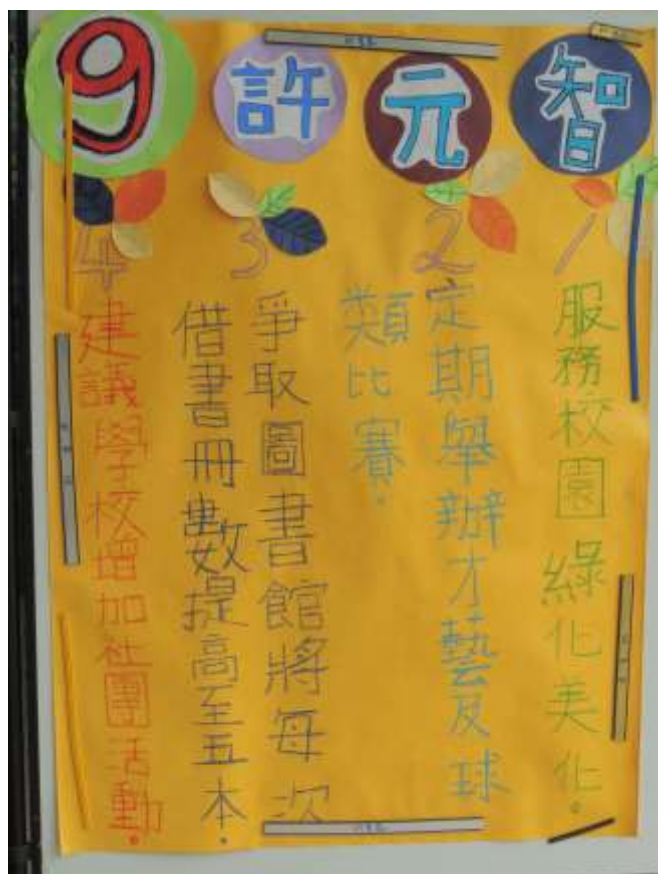 9許元智
1
服務校園綠化美化。
2
定期舉辦才藝及球
類比賽。
3
爭取圖書館將每次
借書冊數提高至五本。
4
建議學校增加社團活動。